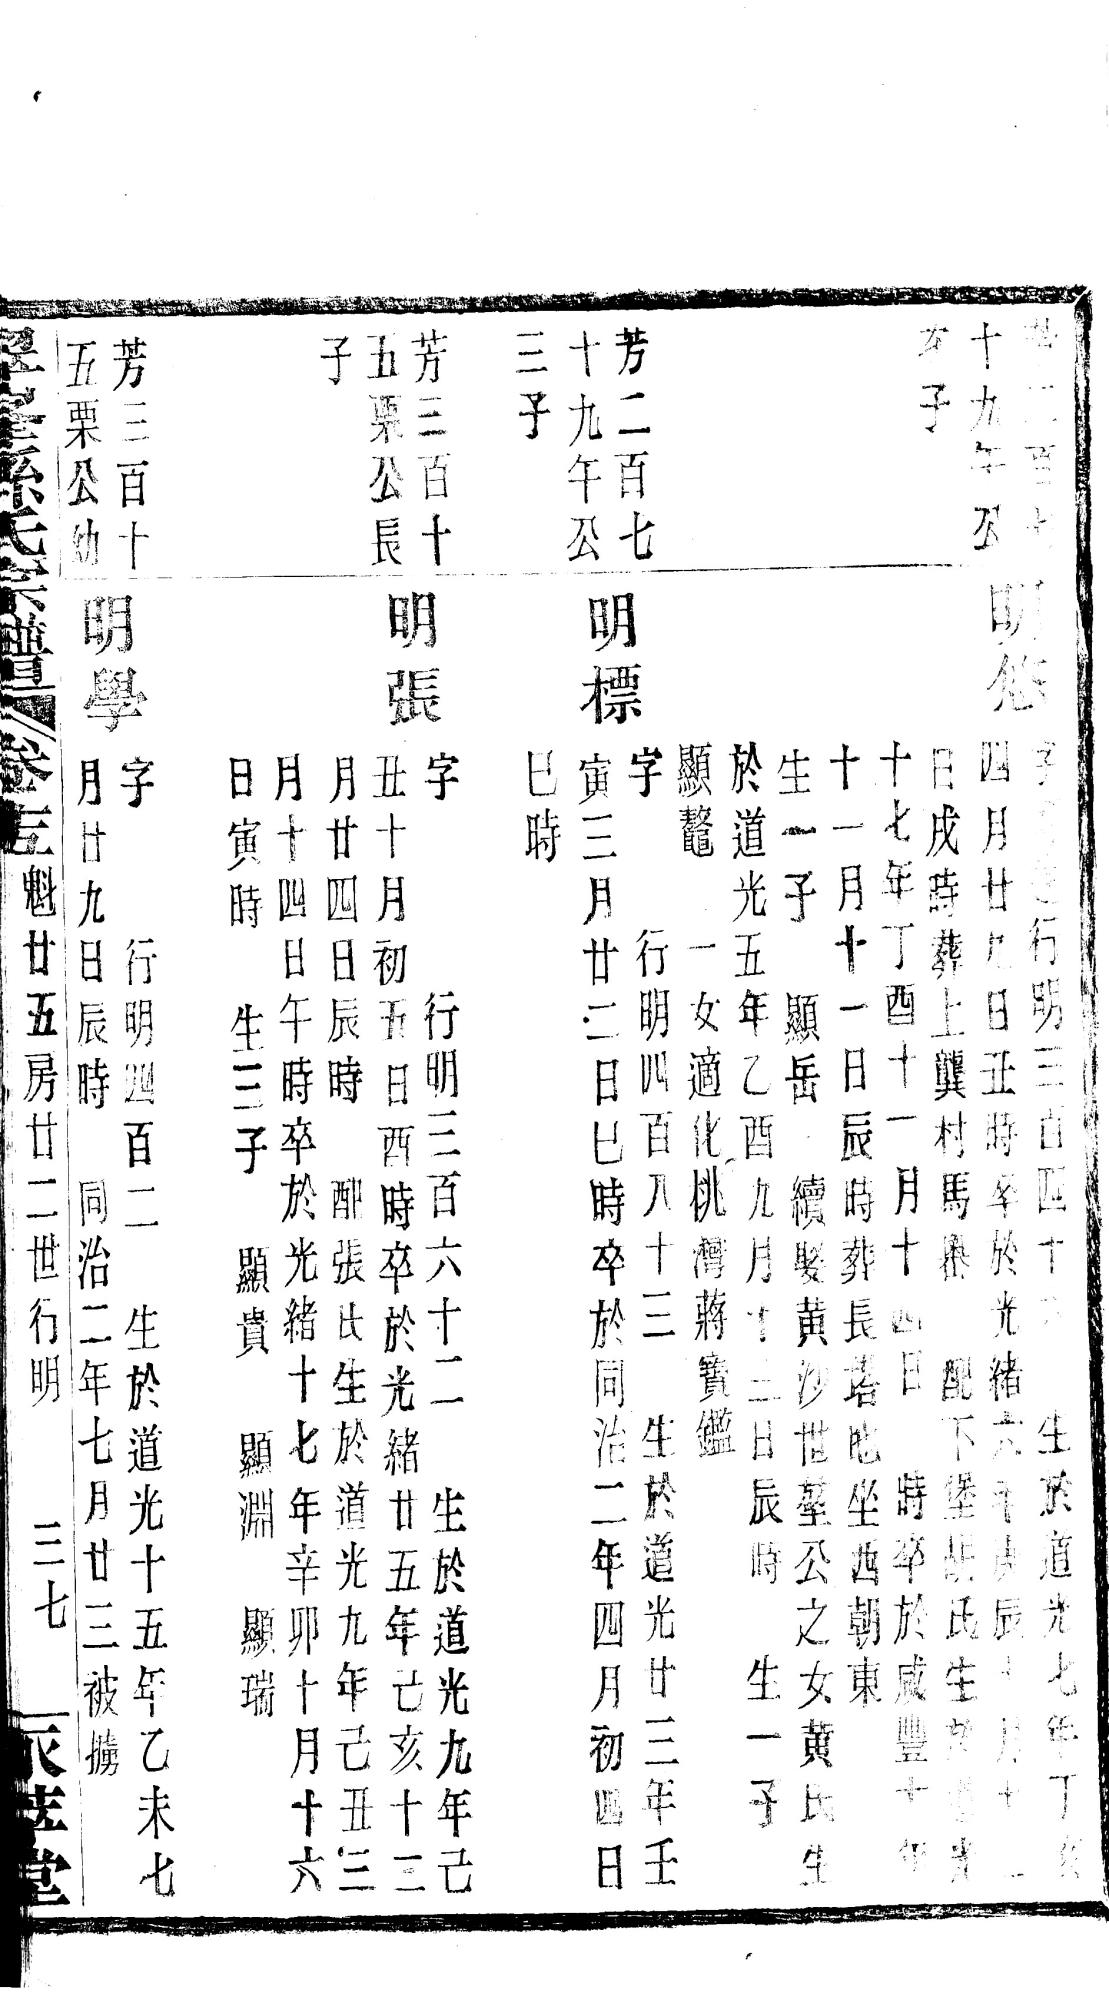 十九午公
次子
明悠
行明三百四十 生於道光七年丁亥
四月廿九日丑時卒於光緒六年庚辰十月十
日戌時葬上龔村馬 配下堡胡氏生於道光
十七年丁酉十一月十四日 時卒於咸豐十年
十一月十一日辰時葬長塔地坐西朝東
生一子 顯岳 續娶黄沙世堂公之女黄氏生
於道光五年乙酉九月十三日辰時 生一子
顯鼇 一女適化桃灣蔣寳鑑
芳二百七
十九午公
三子
明標
字 行明四百八十三 生於道光廿二年壬
寅三月廿二日巳時卒於同治二年四月初四日
巳時
芳三百十
五栗公長
子
明張
字 行明三百六十二 生於道光九年己
丑十月初五日酉時卒於光緒廿五年己亥十二
月廿四日辰時 配張氏生於道光九年己丑三
月十四日午時卒於光緒十七年辛卯十月十六
日寅時 生三子 顯貴 顯淵 顯瑞
芳三百十
五栗公幼
明學
字 行明四百二 生於道光十五年乙未七
月廿九日辰時 同治二年七月廿三被擄
孫氏宗譜 卷三 魁廿五房廿二世行明 三七 堂